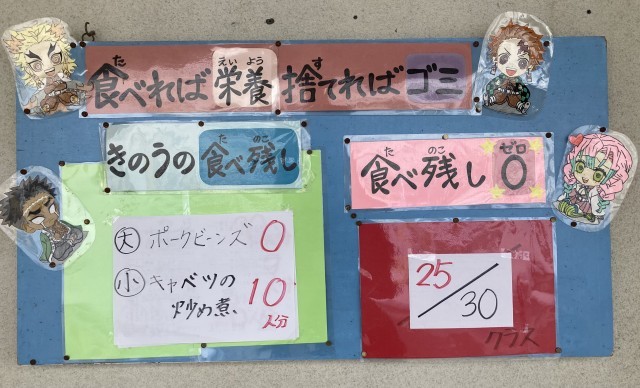 食べれば栄養 捨てればゴミ
た えいよう す
きのうの食べ残し
た のこ
大 ポークビーンズ 0
小 キャベツの
炒め煮 10
人分
食べ残し 0
た のこ ゼロ
25/30
クラス